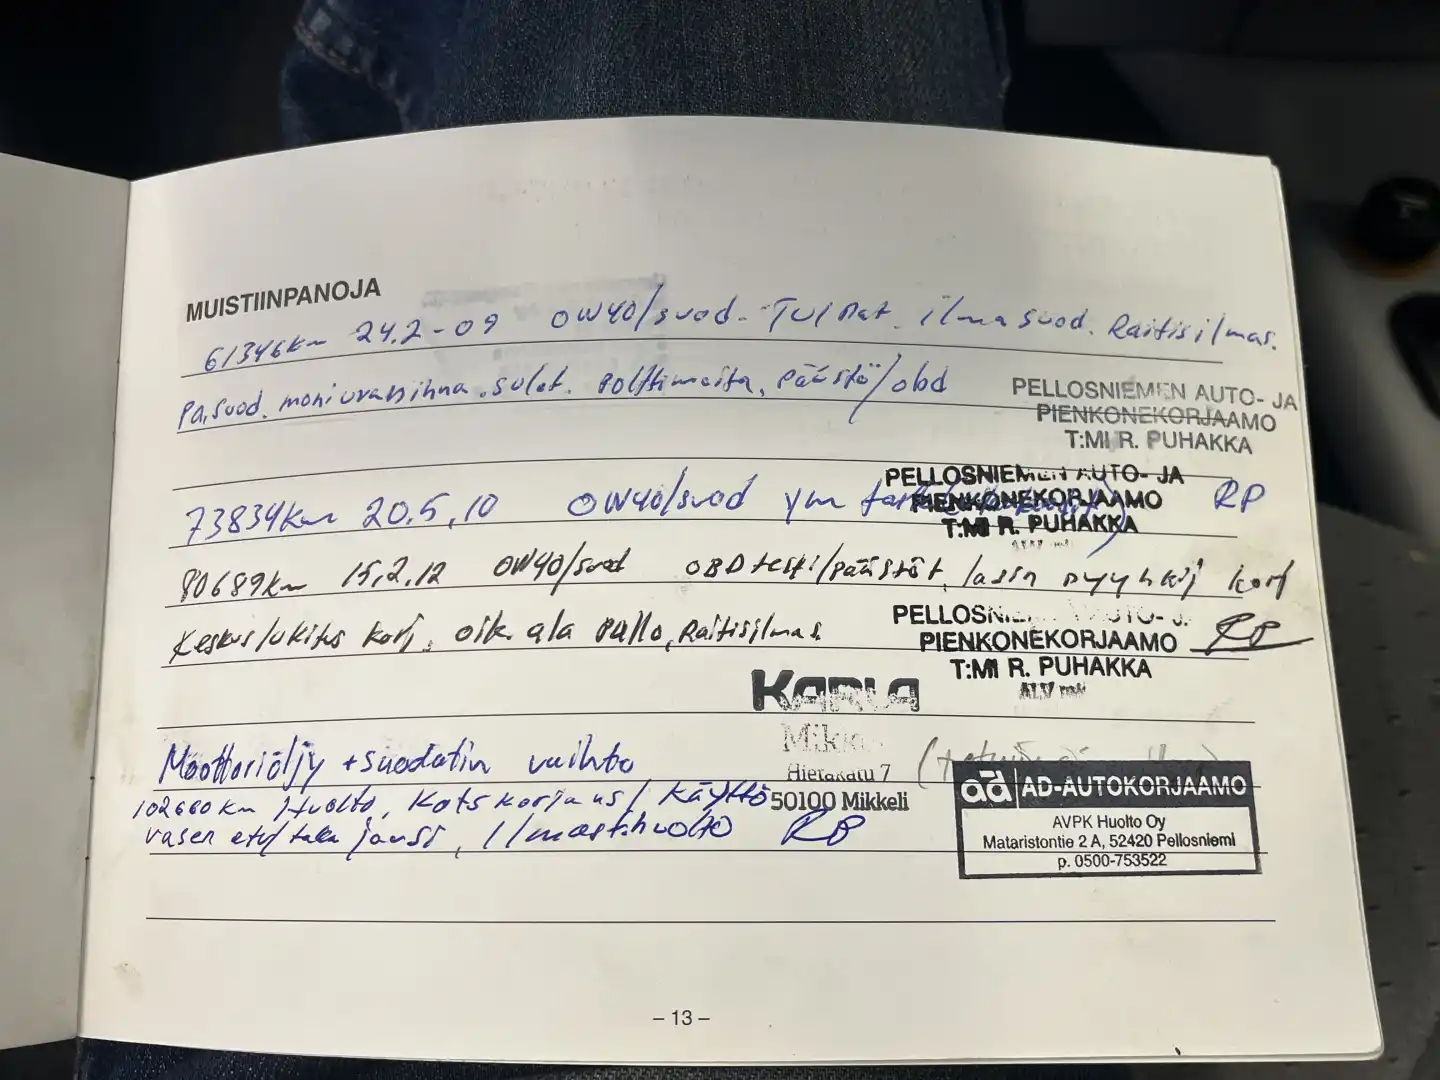 MUISTIINPANOJA
61346km 24.2-09 0W40/suod. Tulpat. ilmasuod. Raitisilmas.
Pa.suod. moniurahihna. sulat. polttimoita, päästö/obd
PELLOSNIEMEN AUTO- JA
PIENKONEKORJAAMO
T:MI R. PUHAKKA
PELLOSNIEMEN AUTO- JA
PIENKONEKORJAAMO
T:MI R. PUHAKKA
73834km 20.5.10 0W40/suod ym RP
80689km 15.2.12 0W40/suod OBD testi/päästöt, lasin pyyhkij korj
Keskuslukitus korj, oik. ala pallo, Raitisilmas
PELLOSNIEMEN AUTO- J.
PIENKONEKORJAAMO RP
T:MI R. PUHAKKA
ALV
KARLA
Mikkeli
Hietakatu 7
50100 Mikkeli
Moottoriöljy + suodatin vaihto
102660 km Huolto, Kats korjaus/ Käyttö
vasen etu/taka jousi, Ilmast.huolto RP
ad AD-AUTOKORJAAMO
AVPK Huolto Oy
Mataristontie 2 A, 52420 Pellosniemi
p. 0500-753522
– 13 –